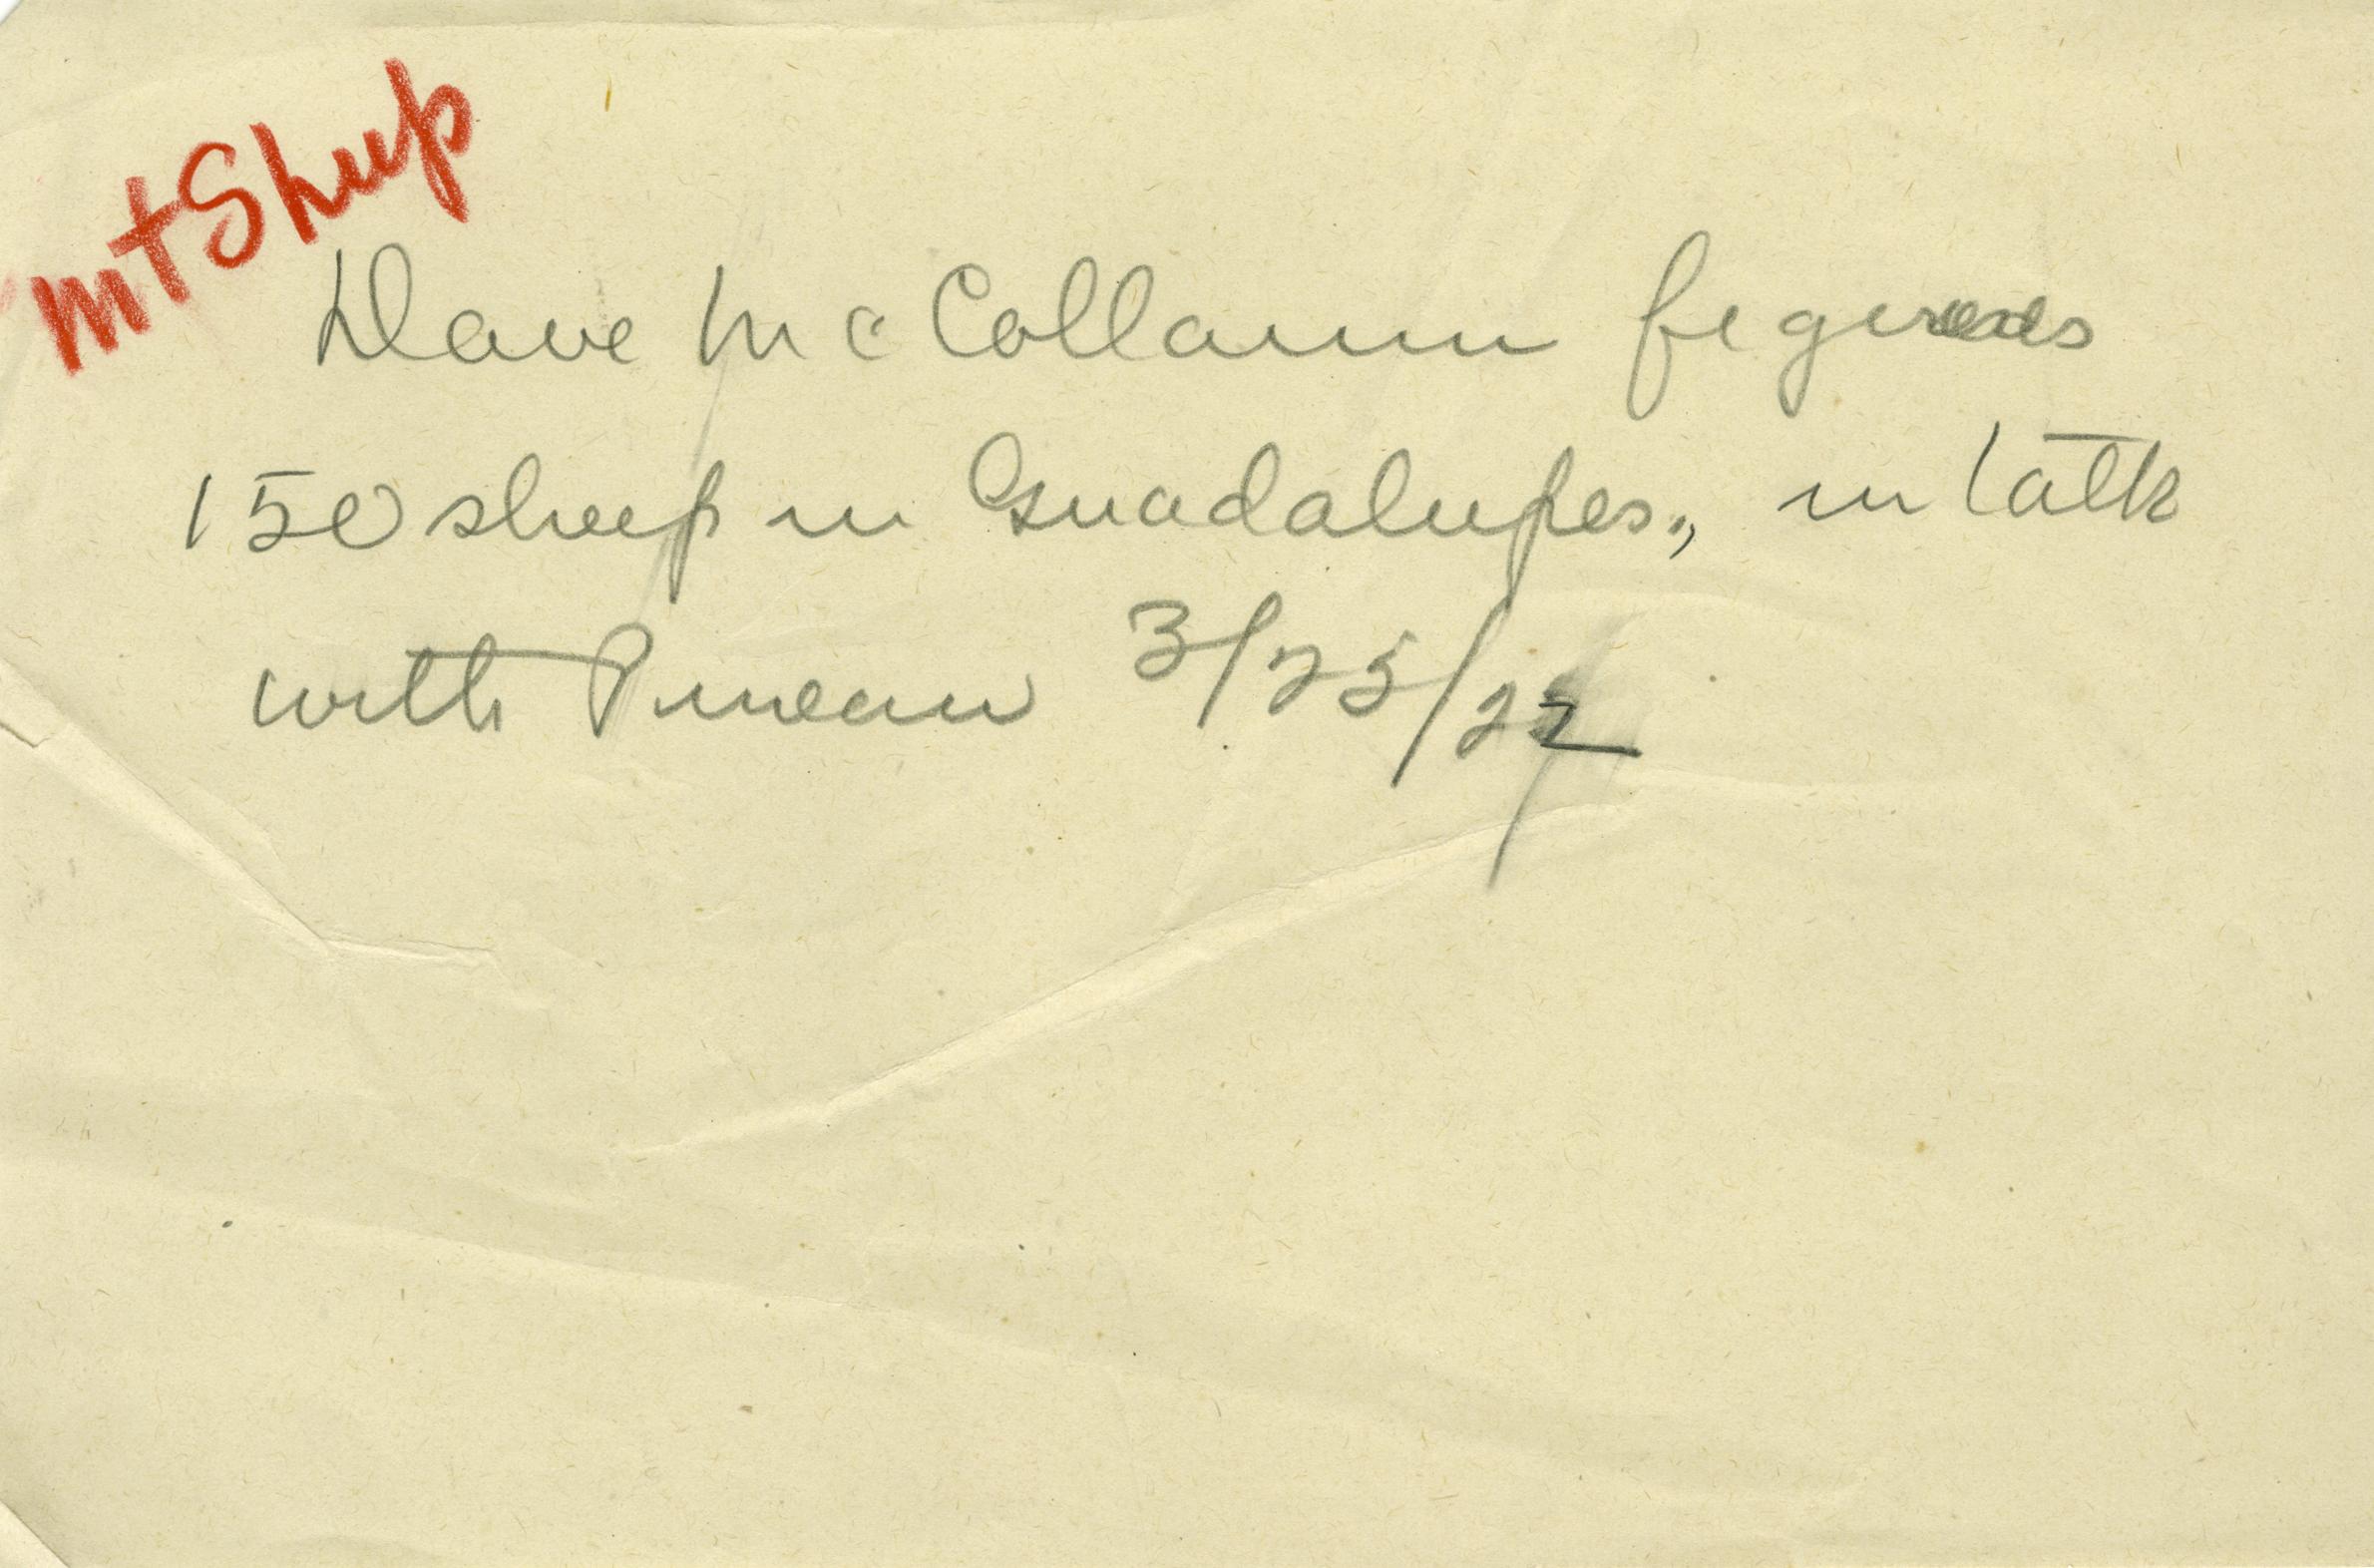 Mt Sheep
Dave McCollaum figures
150 sheep in Guadalupes., in talk
with Pineau 3/25/27